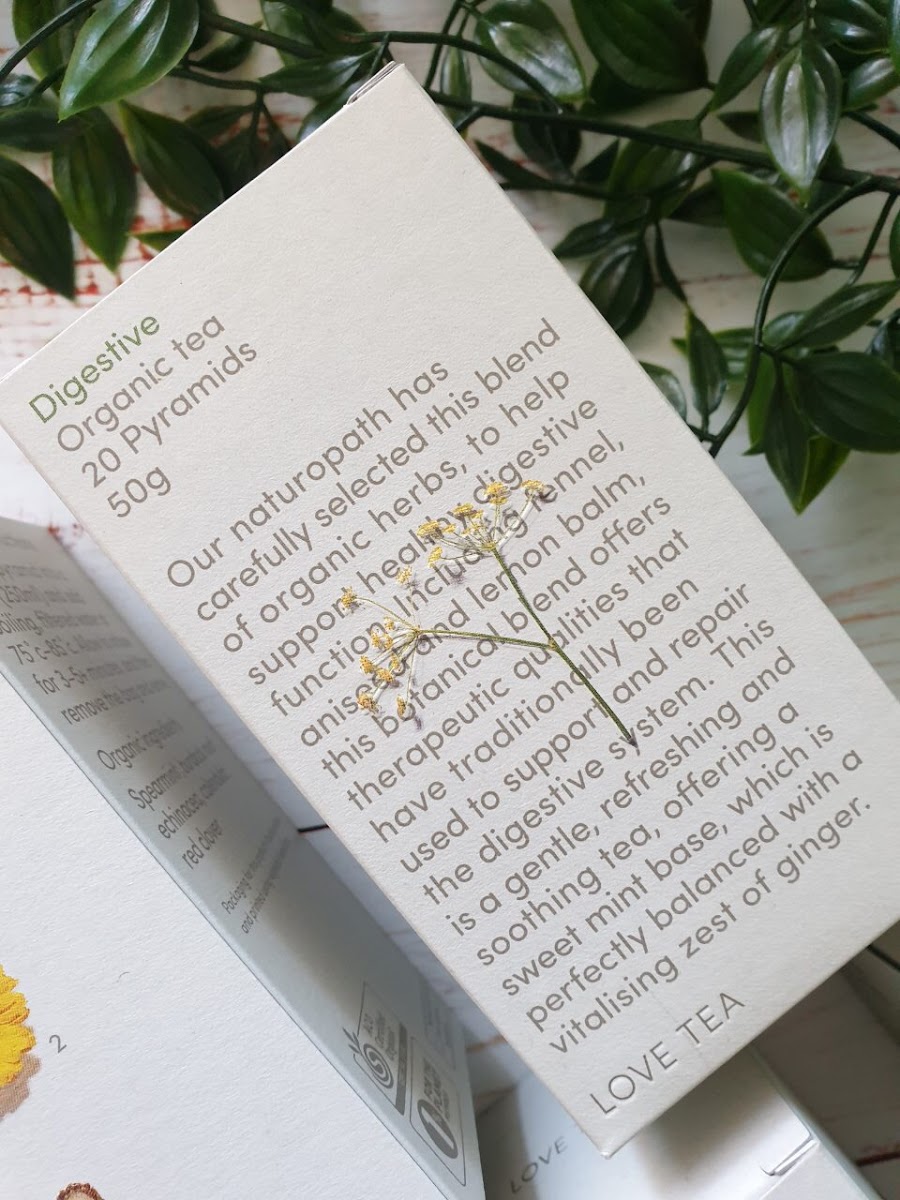 Digestive
Organic tea
20 Pyramids
50g
Our naturopath has
carefully selected this blend
of organic herbs, to help
support healthy digestive
function. Including fennel,
aniseed and lemon balm,
this botanical blend offers
therapeutic qualities that
have traditionally been
used to support and repair
the digestive system. This
is a gentle, refreshing and
soothing tea, offering a
sweet mint base, which is
perfectly balanced with a
vitalising zest of ginger.
LOVE TEA
75°c-85°c.
for 3-5+ minutes
remove the
Organic
Spearmint,
echinacea,
red clover
2
LOVE